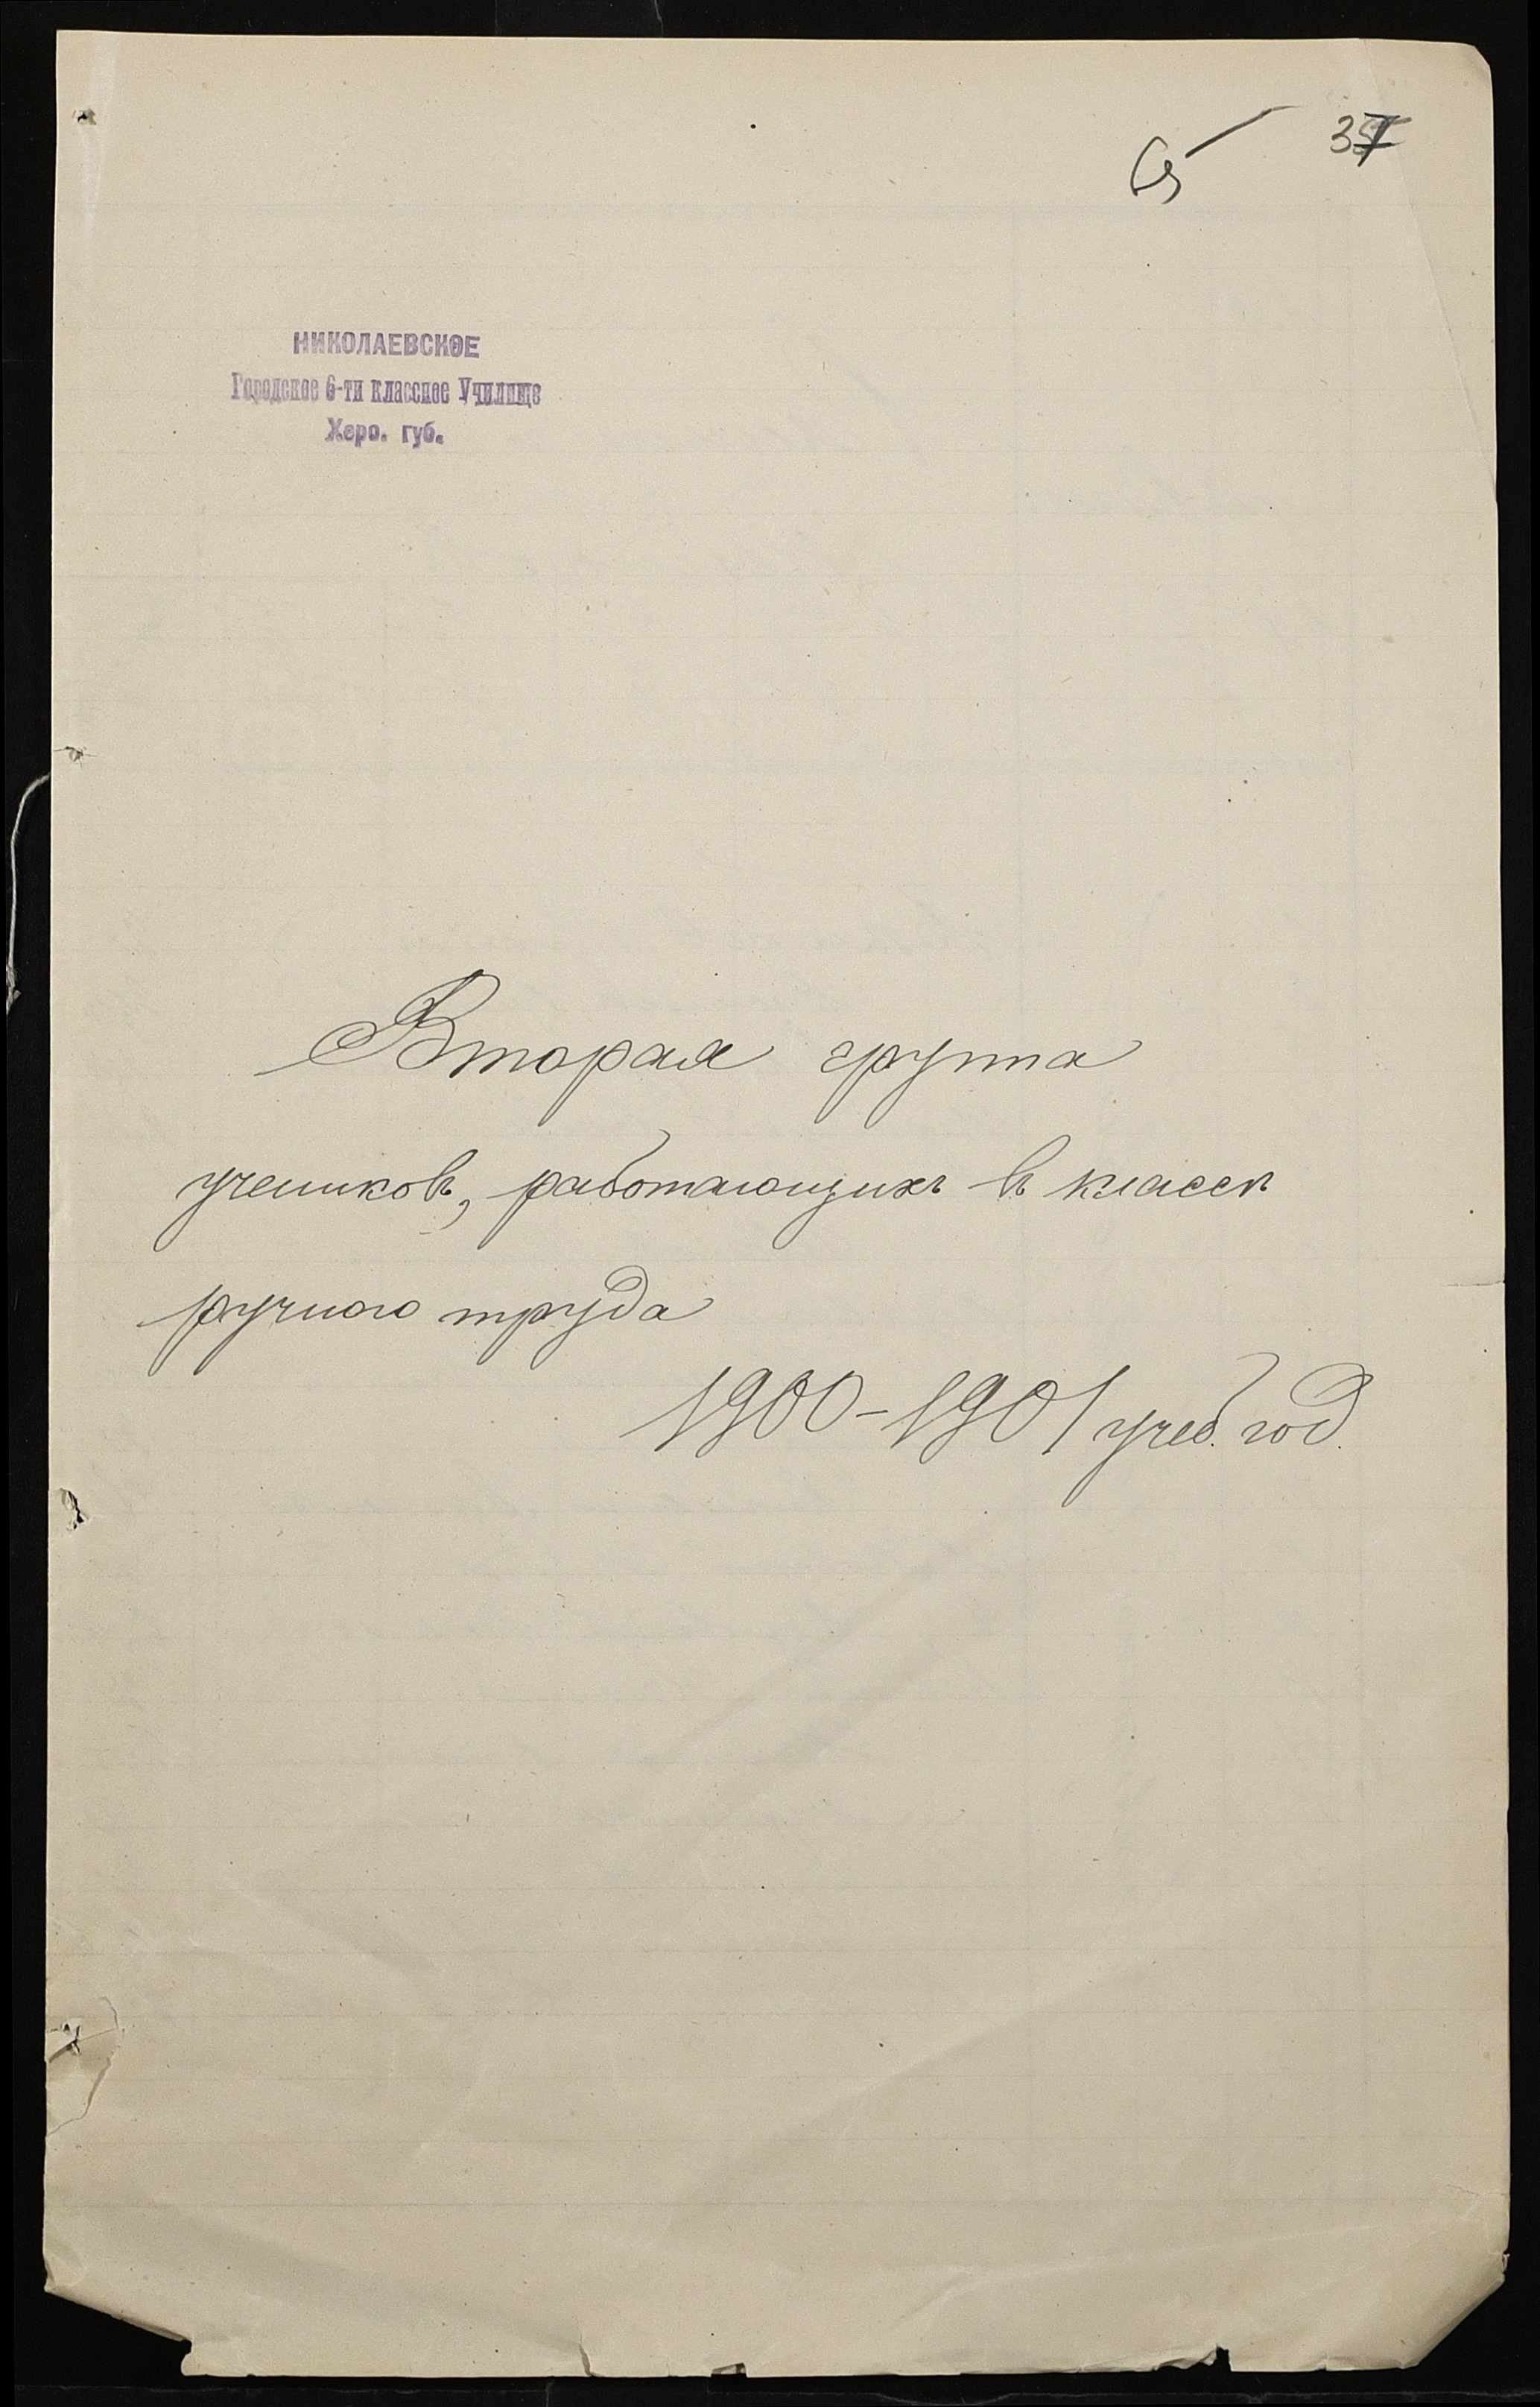 НИКОЛАЕВСКОЕ
Городское 6-ти классное Училище
Херс. губ.
Вторая група
учениковъ, работающихъ въ классѣ
ручного труда
1900-1901 учеб. год.